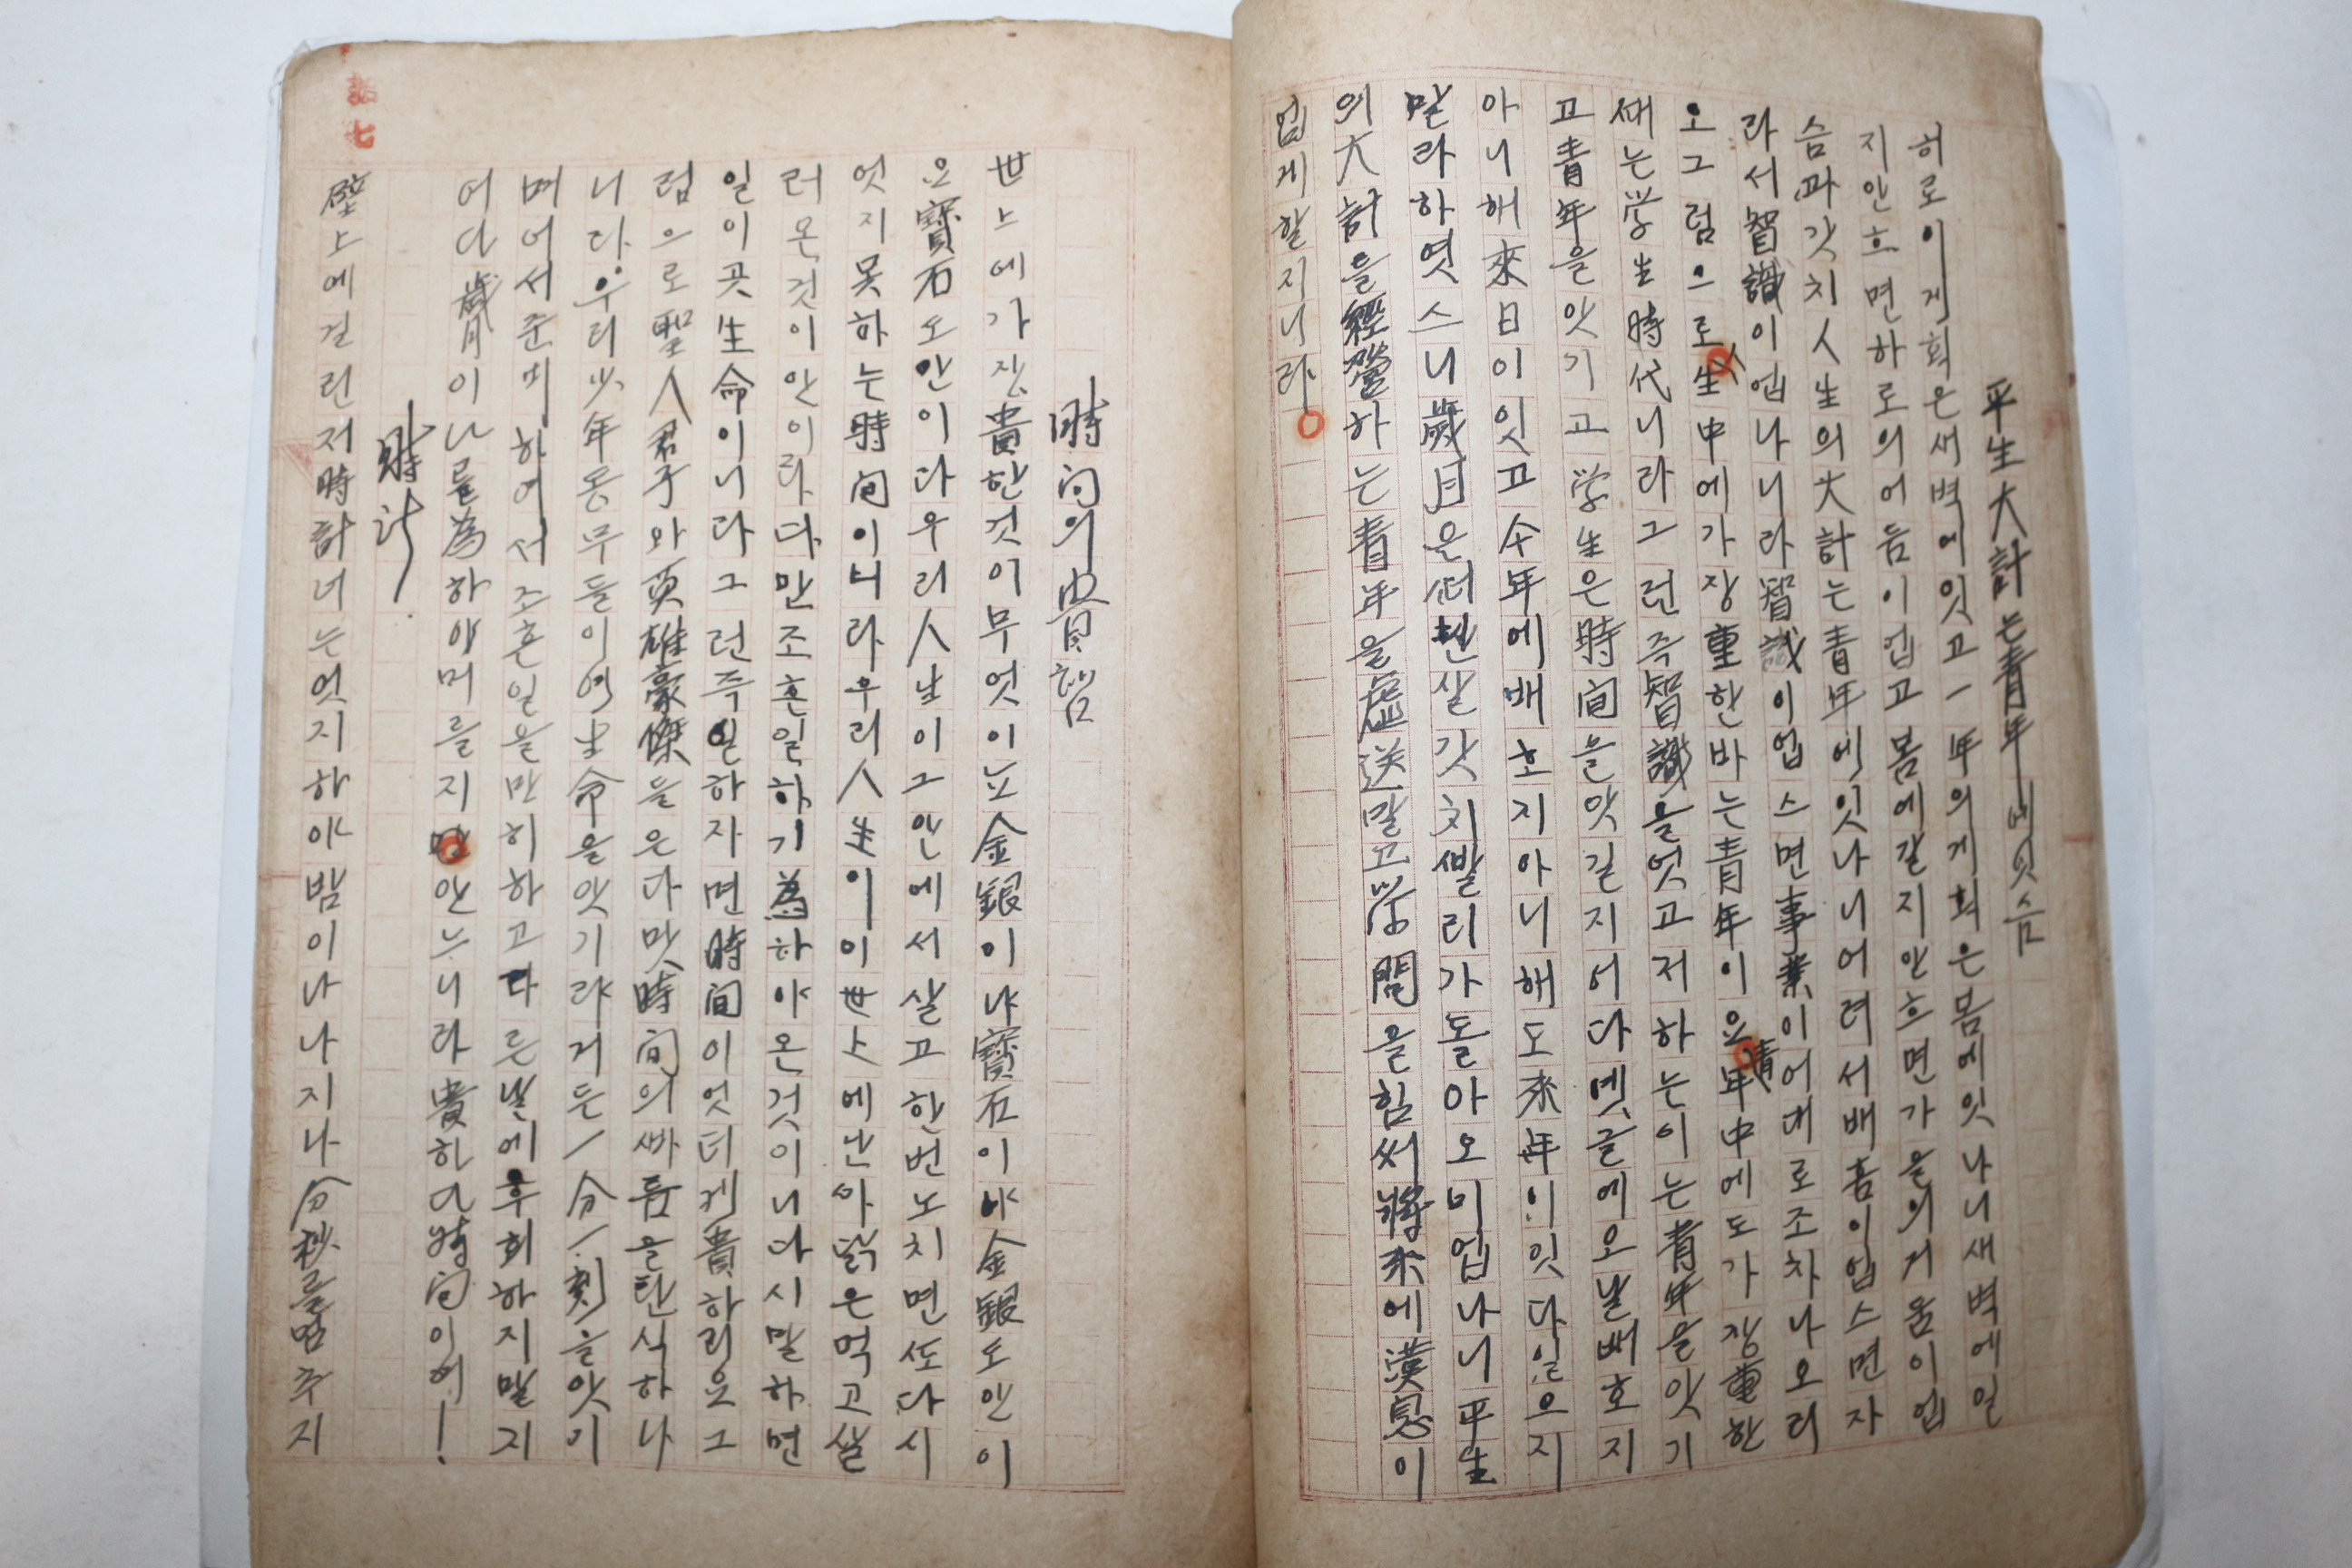 平生大計는靑年에잇슴
하로이게획은새벽에잇고一年의게획은봄에잇나니새벽에일
지안흐면하로의어둠이업고봄에갈지안흐면가을의거움이업
슴과갓치人生의大計는靑年에잇나니어려서배홈이업스면자
라서智識이업나니라智識이업스면事業이어대로조차나오리
오그럼으로人生中에가장重한바는靑年이오靑年中에도가장重한
때는学生時代니라그런즉智識을엇고저하는이는靑年을앗기
고靑年을앗기고学生은時间을앗길지어다녯글에오날배호지
아니해來日이잇고今年에배호지아니해도來年이잇다일으지
말라하엿스니歲月은떠헌살갓치빨리가돌아오미업나니平生
의大計를經營하는靑年을虛送말고学問을힘써將來에漢息이
업게할지니라
時间의貴함
世上에가장貴한것이무엇이뇨金銀이냐寶石이냐金銀도안이
요寶石도안이다우리人날이그안에서살고한번노치면또다시
엇지못하는時间이니라우리人生이이世上에난까닭은먹고살
러온것이안이라다만조흔일하기爲하야온것이니다시말하면
일이곳生命이니라그런즉일하자면時间이엇더게貴하리요그
럼으로聖人君子와英雄豪傑을은다맛時间의빠름을탄식하나
니다우리少年동무들이여生命을앗기랴거든一分一刻을앗기
며어서준비하여서조흔일을만히하고다른날에후회하지말지
어다歲月이나를爲하야머를지안느니라貴하다時间이여!
時計
壁上에걸린저時計너는엇지하야밤이나나지나分秒를멈추지